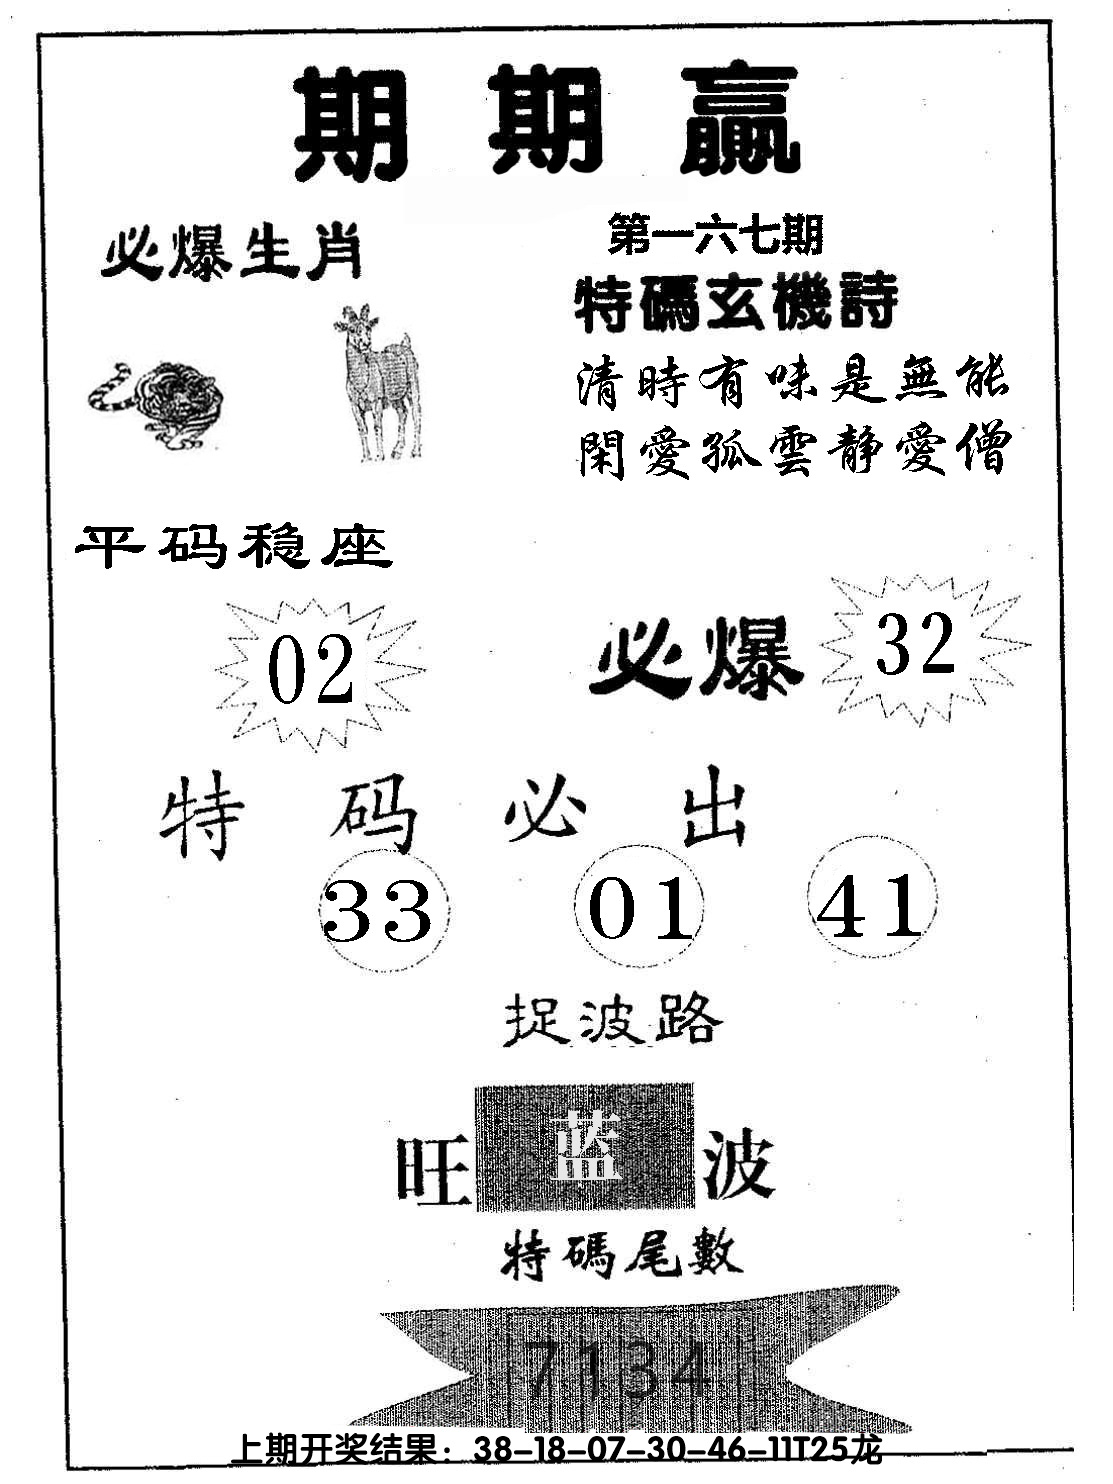 期期赢
必爆生肖
第一六七期
特碼玄機詩
清時有味是無能
閑愛孤雲静愛僧
平码稳座
02
必爆
32
特码必出
33 01 41
捉波路
旺蓝波
特碼尾數
7134
上期开奖结果：38-18-07-30-46-11T25龙